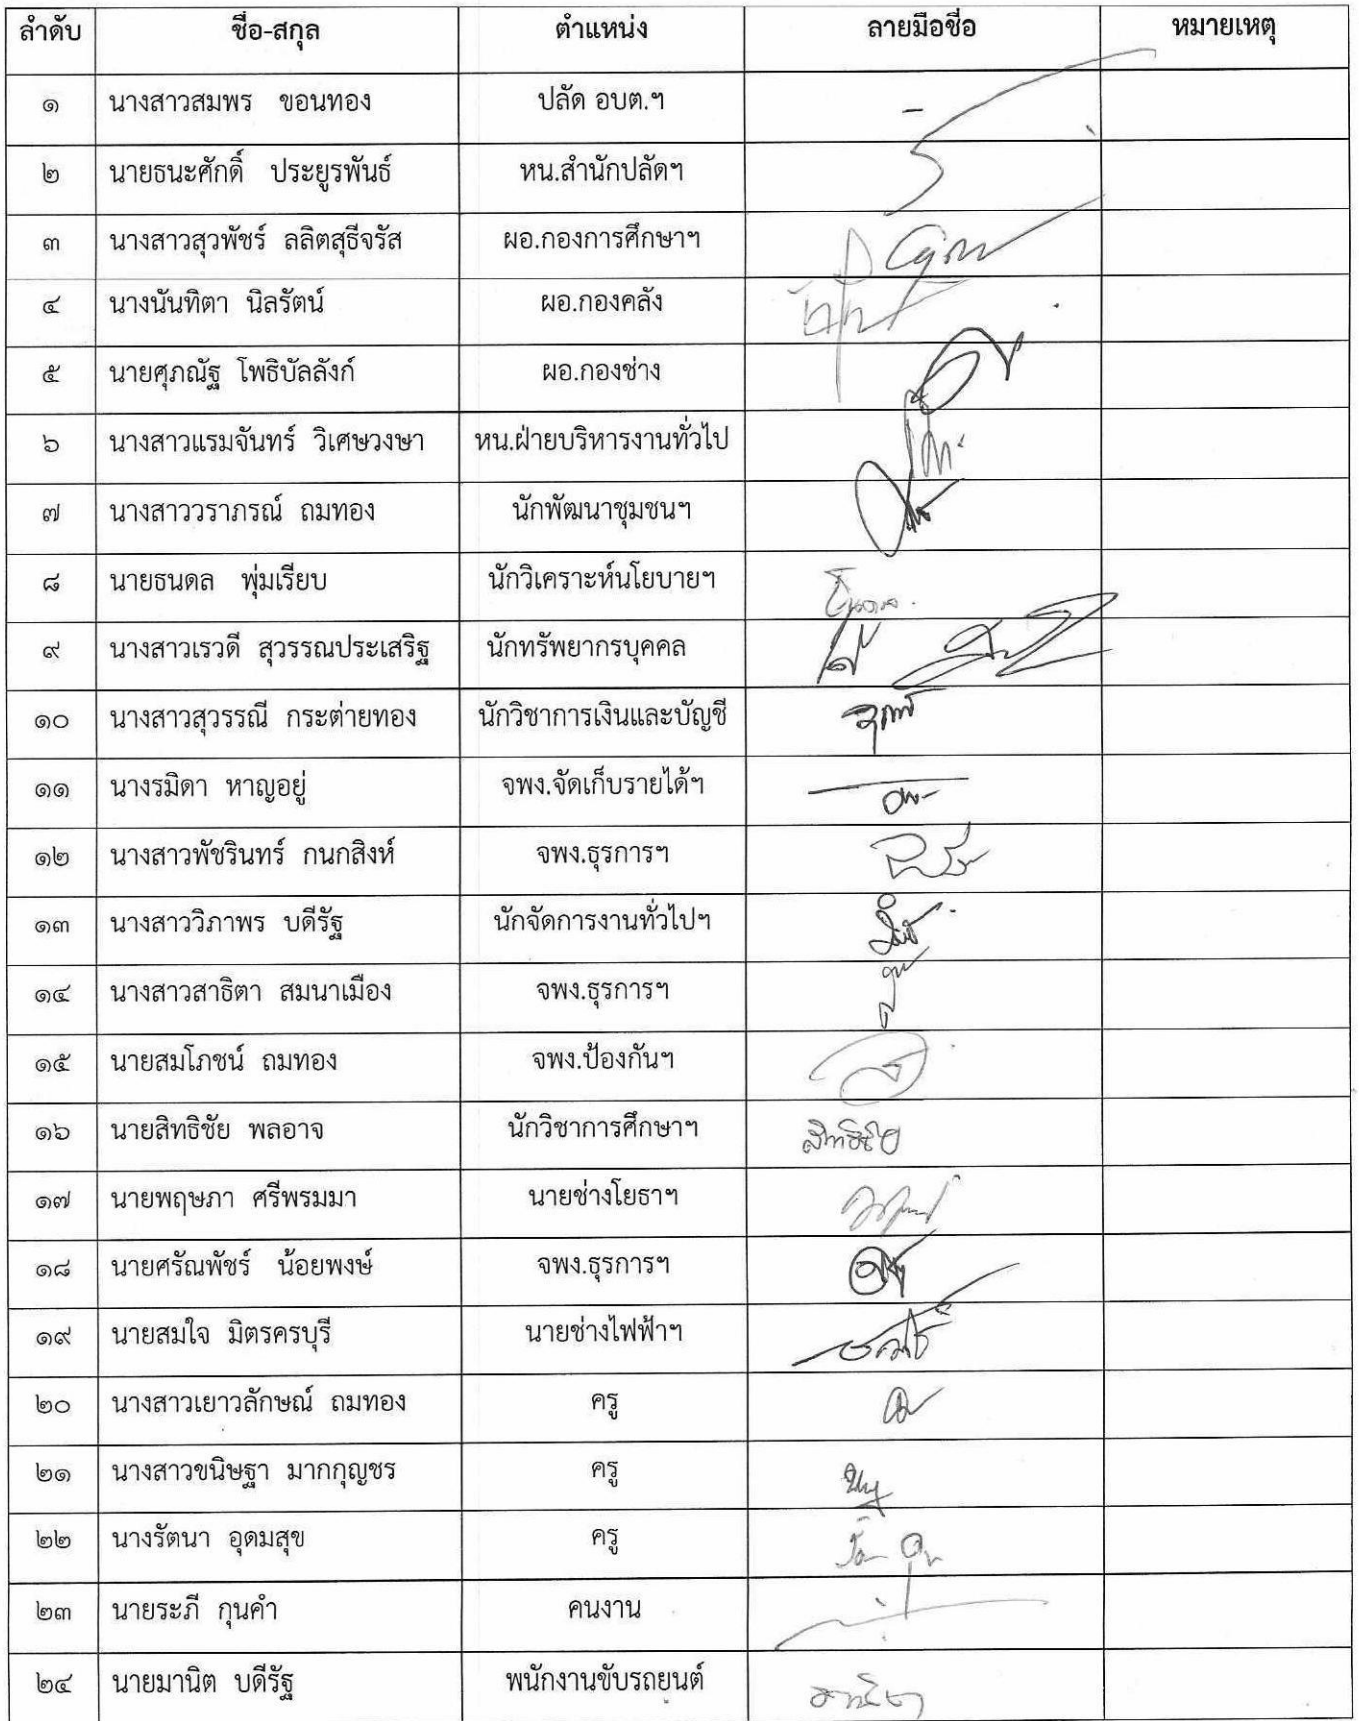 ลำดับ ชื่อ-สกุล ตำแหน่ง ลายมือชื่อ หมายเหตุ
๑ นางสาวสมพร ขอนทอง ปลัด อบต.ฯ -
๒ นายธนะศักดิ์ ประยูรพันธ์ หน.สำนักปลัดฯ
๓ นางสาวสุวพัชร์ ลลิตสุธีจรัส ผอ.กองการศึกษาฯ
๔ นางนันทิตา นิลรัตน์ ผอ.กองคลัง
๕ นายศุภณัฐ โพธิบัลลังก์ ผอ.กองช่าง
๖ นางสาวแรมจันทร์ วิเศษวงษา หน.ฝ่ายบริหารงานทั่วไป
๗ นางสาววราภรณ์ ถมทอง นักพัฒนาชุมชนฯ
๘ นายธนดล พุ่มเรียบ นักวิเคราะห์นโยบายฯ
๙ นางสาวเรวดี สุวรรณประเสริฐ นักทรัพยากรบุคคล
๑๐ นางสาวสุวรรณี กระต่ายทอง นักวิชาการเงินและบัญชี
๑๑ นางรมิดา หาญอยู่ จพง.จัดเก็บรายได้ฯ
๑๒ นางสาวพัชรินทร์ กนกสิงห์ จพง.ธุรการฯ
๑๓ นางสาววิภาพร บดีรัฐ นักจัดการงานทั่วไปฯ
๑๔ นางสาวสาธิตา สมนาเมือง จพง.ธุรการฯ
๑๕ นายสมโภชน์ ถมทอง จพง.ป้องกันฯ
๑๖ นายสิทธิชัย พลอาจ นักวิชาการศึกษาฯ สิทธิชัย
๑๗ นายพฤษภา ศรีพรมมา นายช่างโยธาฯ
๑๘ นายศรัณพัชร์ น้อยพงษ์ จพง.ธุรการฯ
๑๙ นายสมใจ มิตรครบุรี นายช่างไฟฟ้าฯ
๒๐ นางสาวเยาวลักษณ์ ถมทอง ครู
๒๑ นางสาวขนิษฐา มากกุญชร ครู
๒๒ นางรัตนา อุดมสุข ครู
๒๓ นายระภี กุนคำ คนงาน
๒๔ นายมานิต บดีรัฐ พนักงานขับรถยนต์